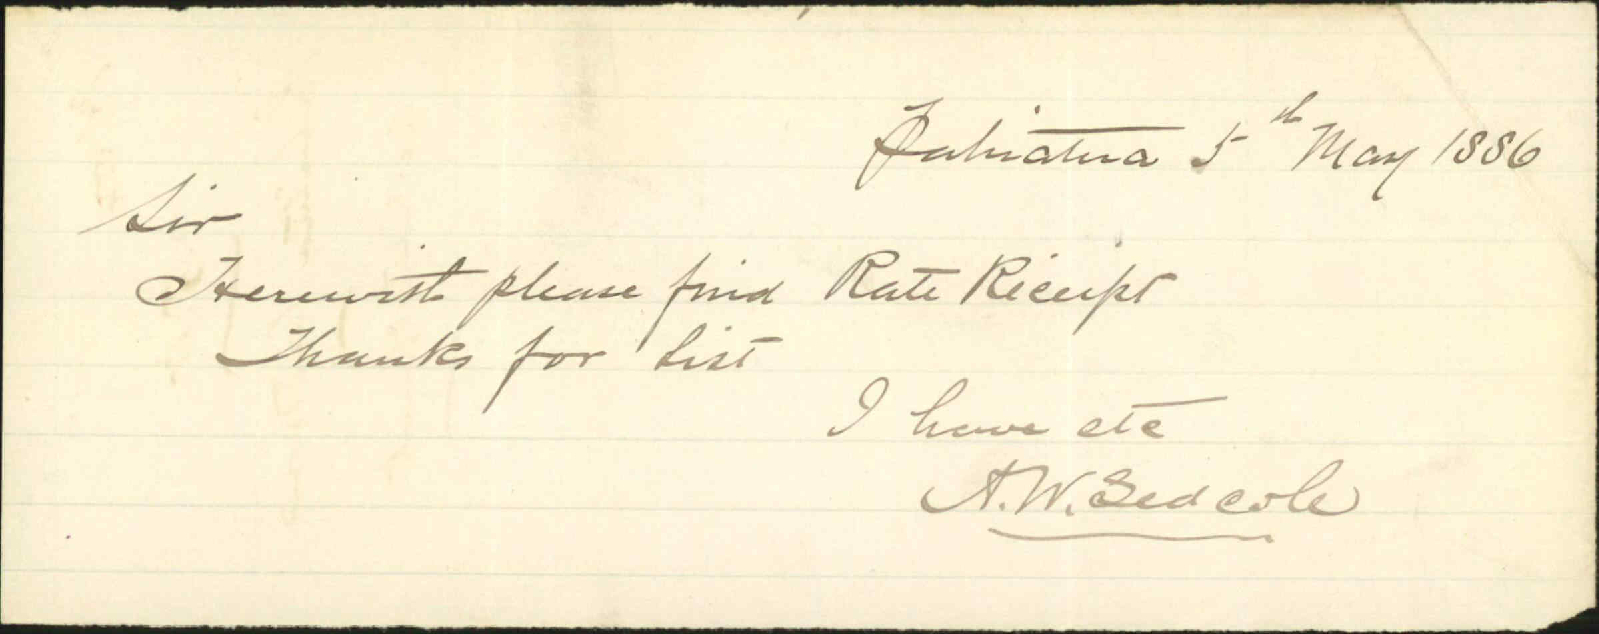 Pahiatua 5th May 1886
Sir
Herewith please find Rate Receipt
Thanks for List
I have etc
A.W. Sedcole